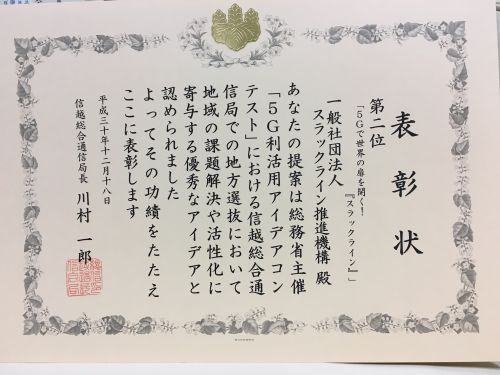 表彰状
第二位
「5Gで世界の扉を開く！
『スラックライン』」
一般社団法人
スラックライン推進機構 殿
あなたの提案は総務省主催
「5G利活用アイデアコン
テスト」における信越総合通
信局での地方選抜において
地域の課題解決や活性化に
寄与する優秀なアイデアと
認められました
よってその功績をたたえ
ここに表彰します
平成三十年十二月十八日
信越総合通信局長 川村 一郎